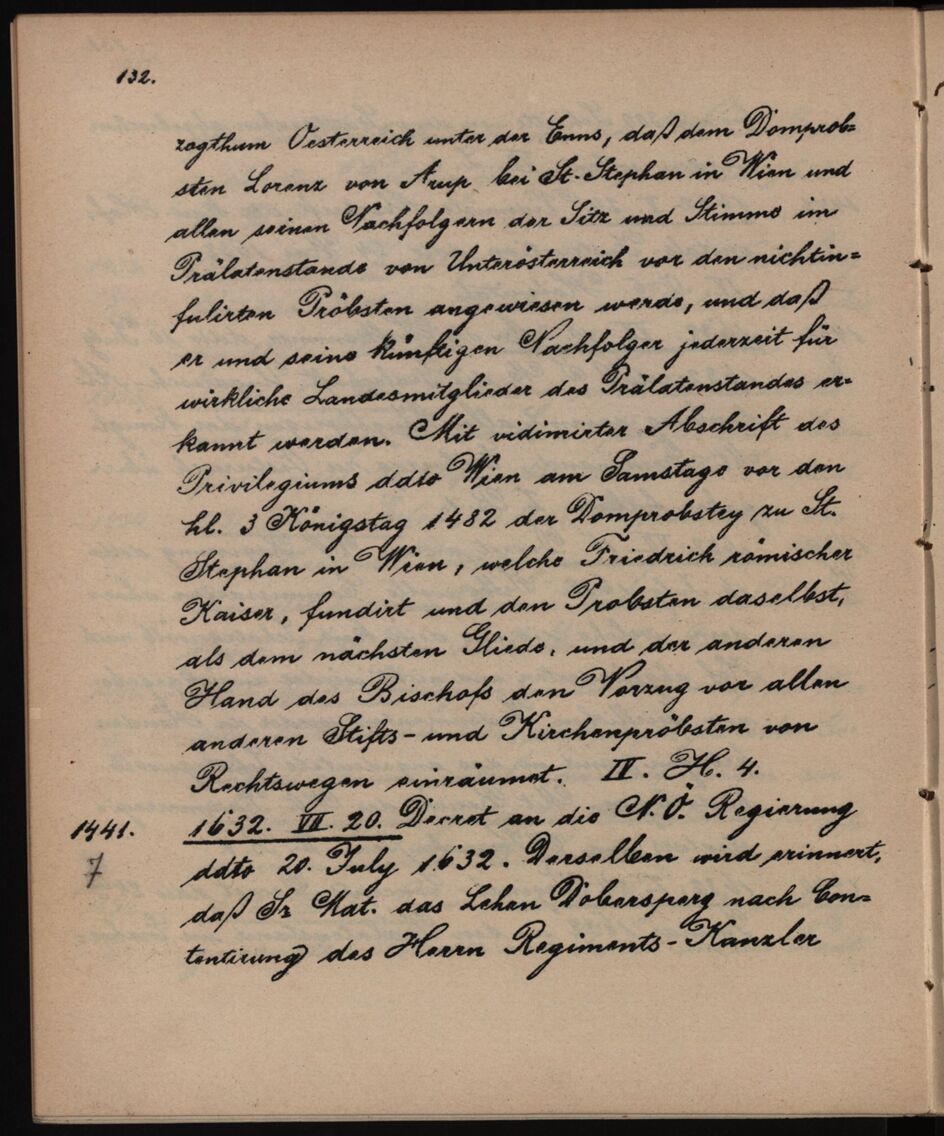 132.
zogthum Oesterreich unter der Enns, daß dem Domprob=
sten Lorenz von Arup bei St. Stephan in Wien und
allen seinen Nachfolgern der Sitz und Stimme im
Prälatenstande von Unterösterreich vor den nichtin=
fulirten Pröbsten angewiesen werde, und daß
er und seine künftigen Nachfolger jederzeit für
wirkliche Landesmitglieder des Prälatenstandes er=
kannt werden. Mit vidimirter Abschrift des
Privilegiums ddto Wien am Samstage vor den
hl. 3 Königstag 1482 der Domprobstey zu St.
Stephan in Wien, welche Friedrich römischer
Kaiser, fundirt und den Probsten daselbst,
als dem nächsten Gliede, und der anderen
Hand des Bischofs den Vorzug vor allen
anderen Stifts- und Kirchenpröbsten von
Rechtswegen einräumet. IV. H. 4.
1441. 1632. VII. 20. Decret an die N.Ö. Regierung
7 ddto 20. July 1632. Derselben wird erinnert,
daß Sr Mat. das Lehen Dobersperg nach Con=
tentirung des Herrn Regiments-Kanzler